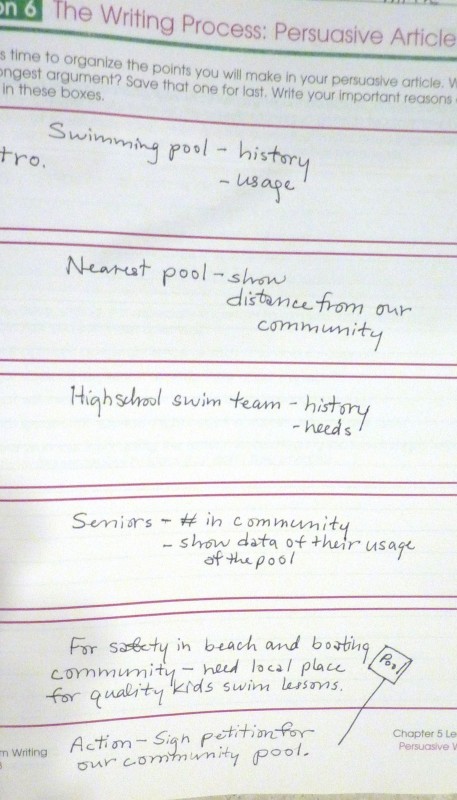 on 6 The Writing Process: Persuasive Article
s time to organize the points you will make in your persuasive article. W
ongest argument? Save that one for last. Write your important reasons
in these boxes.
Swimming pool - history
tro.
- usage
Nearest pool - show
distance from our
community
Highschool swim team - history
- needs
Seniors - # in community
- show data of their usage
of the pool
For safety in beach and boating
community - need local place
for quality kids swim lessons.
Pool
Action - Sign petition for
our community pool.
m Writing
Chapter 5 Le
Persuasive W